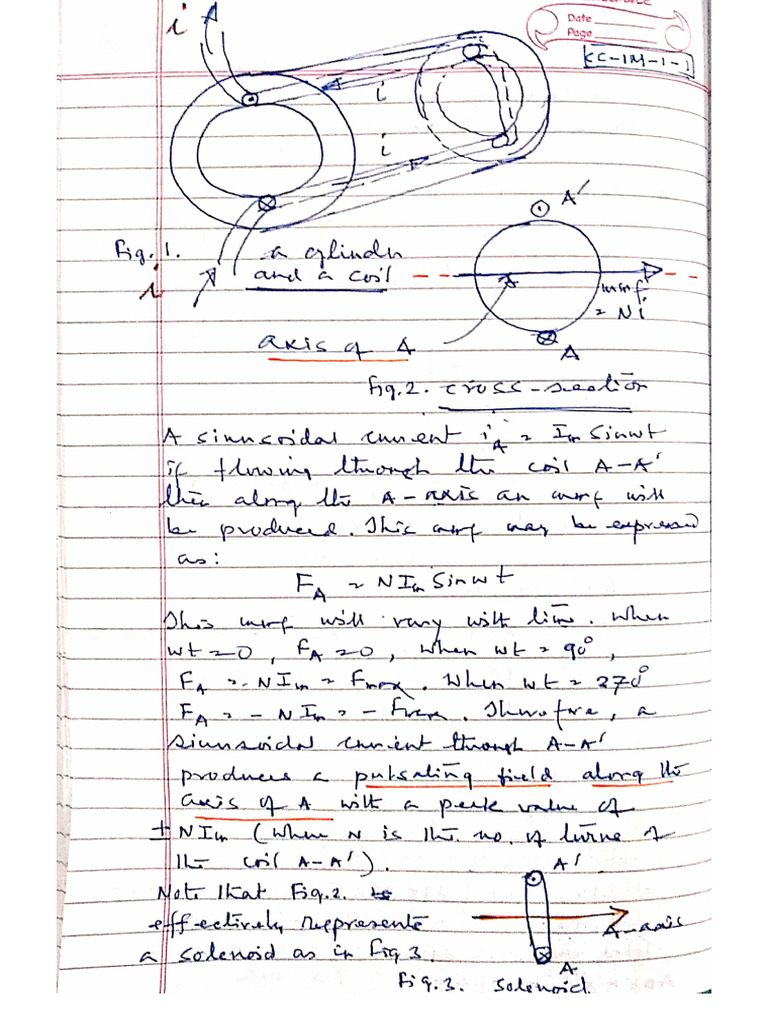 Date
Page
KC-IM-1-1
i
i
i
Fig. 1.
i
a cylinder
and a coil
A'
mmf
= Ni
axis of A
A
Fig.2. cross-section
A sinusoidal current i_A = I_m Sinwt
if flowing through the coil A-A'
then along the A-axis an mmf will
be produced. This mmf may be expressed
as:
F_A = N I_m Sinwt
This mmf will vary with time. When
wt = 0, F_A = 0, when wt = 90°,
F_A = N I_m = F_max. When wt = 270°
F_A = - N I_m = - F_max. Therefore, a
sinusoidal current through A-A'
produces a pulsating field along the
axis of A with a peak value of
± N I_m (where N is the no. of turns of
the coil A-A').
Note that Fig.2.
effectively represents
a solenoid as in Fig 3.
A'
A-axis
A
Fig. 3. Solenoid.